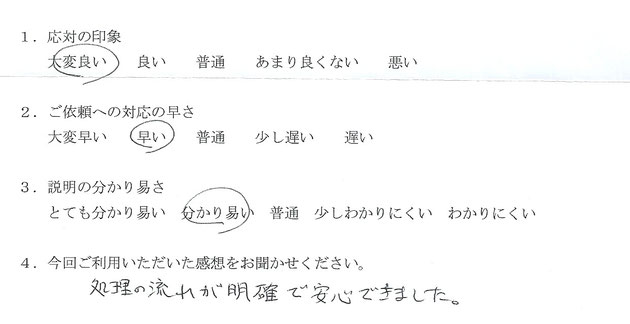 １．応対の印象
大変良い　良い　普通　あまり良くない　悪い
２．ご依頼への対応の早さ
大変早い　早い　普通　少し遅い　遅い
３．説明の分かり易さ
とても分かり易い　分かり易い　普通　少しわかりにくい　わかりにくい
４．今回ご利用いただいた感想をお聞かせください。
処理の流れが明確で安心できました。